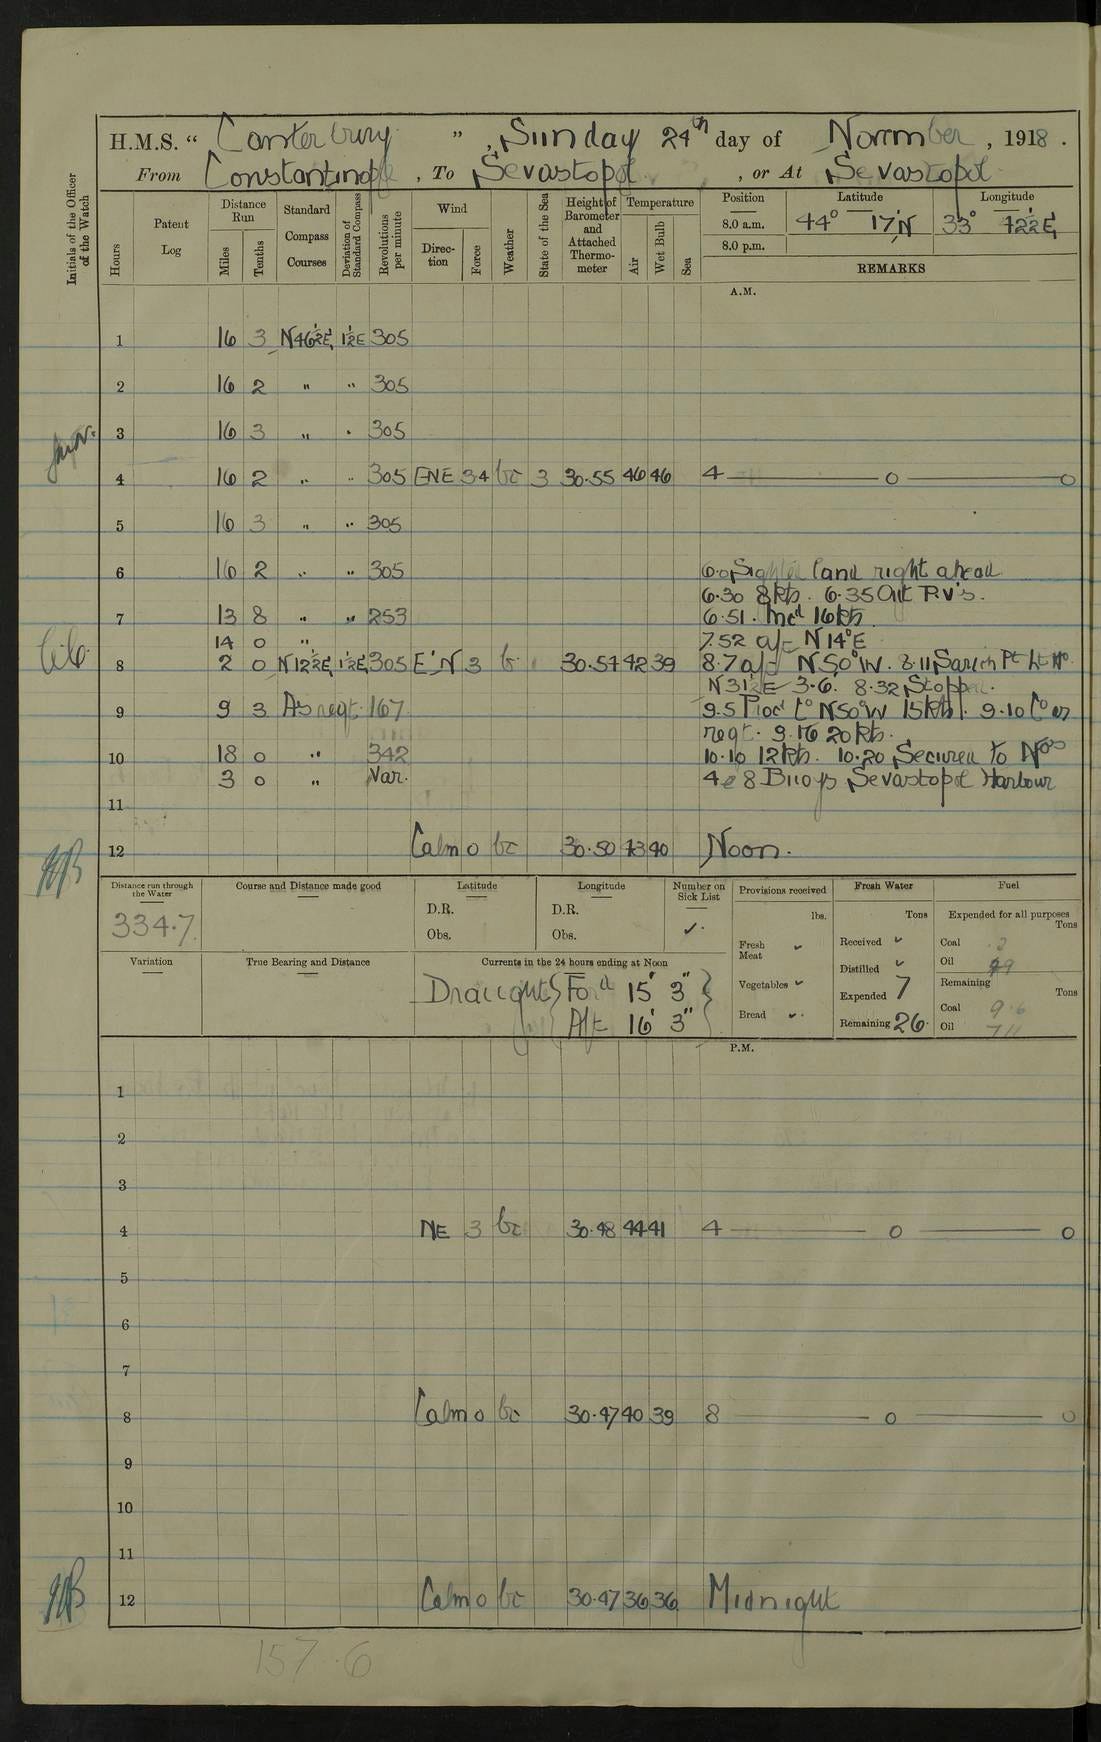 H.M.S. " Canterbury ", Sunday 24th day of November, 1918.
From Constantinople, To Sevastopol, or At Sevastopol
Initials of the Officer of the Watch
Hours
Patent Log
Distance Run
Miles
Tenths
Standard Compass Courses
Deviation of Standard Compass
Revolutions per minute
Wind
Direction
Force
Weather
State of the Sea
Height of Barometer and Attached Thermometer
Temperature
Air
Wet Bulb
Sea
Position
Latitude
Longitude
8.0 a.m. 44° 17'N 33° 22½'E
8.0 p.m.
REMARKS
A.M.
1 16 3 N46½E 1½E 305
2 16 2 " " 305
3 16 3 " " 305
4 16 2 " " 305 ENE 34 bc 3 30.55 46 46 4 — 0 — 0
5 16 3 " " 305
6 16 2 " " 305 6.0 Sighted land right ahead
6.30 8 kts. 6.35 Out P.V's.
7 13 8 " " 253 6.51. Incd 16 kts
14 0 " 7.52 a/c N14°E
8 2 0 N12½E 1½E 305 E'N 3 b 30.54 42 39 8.7 a/c N50°W. 8.11 Sarich Pt Lt Ho.
N31½E 3.6. 8.32 Stopped.
9 9 3 As reqt. 167 9.5 Procd Co N50°W 15 kts. 9.10 Co as
reqt. 9.16 20 kts.
10 18 0 " 342 10.10 12 kts. 10.20 Secured to Nos
3 0 " Var. 4 & 8 Buoys Sevastopol Harbour
11
12 Calm 0 bc 30.50 43 40 Noon.
Distance run through the Water
334.7
Course and Distance made good
Latitude
D.R.
Obs.
Longitude
D.R.
Obs.
Number on Sick List
✓.
Provisions received
lbs.
Fresh Meat ✓
Vegetables ✓
Bread ✓
Fresh Water
Tons
Received ✓
Distilled ✓
Expended 7
Remaining 26.
Fuel
Expended for all purposes
Tons
Coal
Oil
Remaining
Tons
Coal 9.6
Oil 711
Variation
True Bearing and Distance
Currents in the 24 hours ending at Noon
Draught { Ford 15' 3" }
Aft 16' 3"
P.M.
1
2
3
4 NE 3 bc 30.48 44 41 4 — 0 — 0
5
6
7
8 Calm 0 bc 30.47 40 39 8 — 0 — 0
9
10
11
12 Calm 0 bc 30.47 36 36 Midnight
157.6